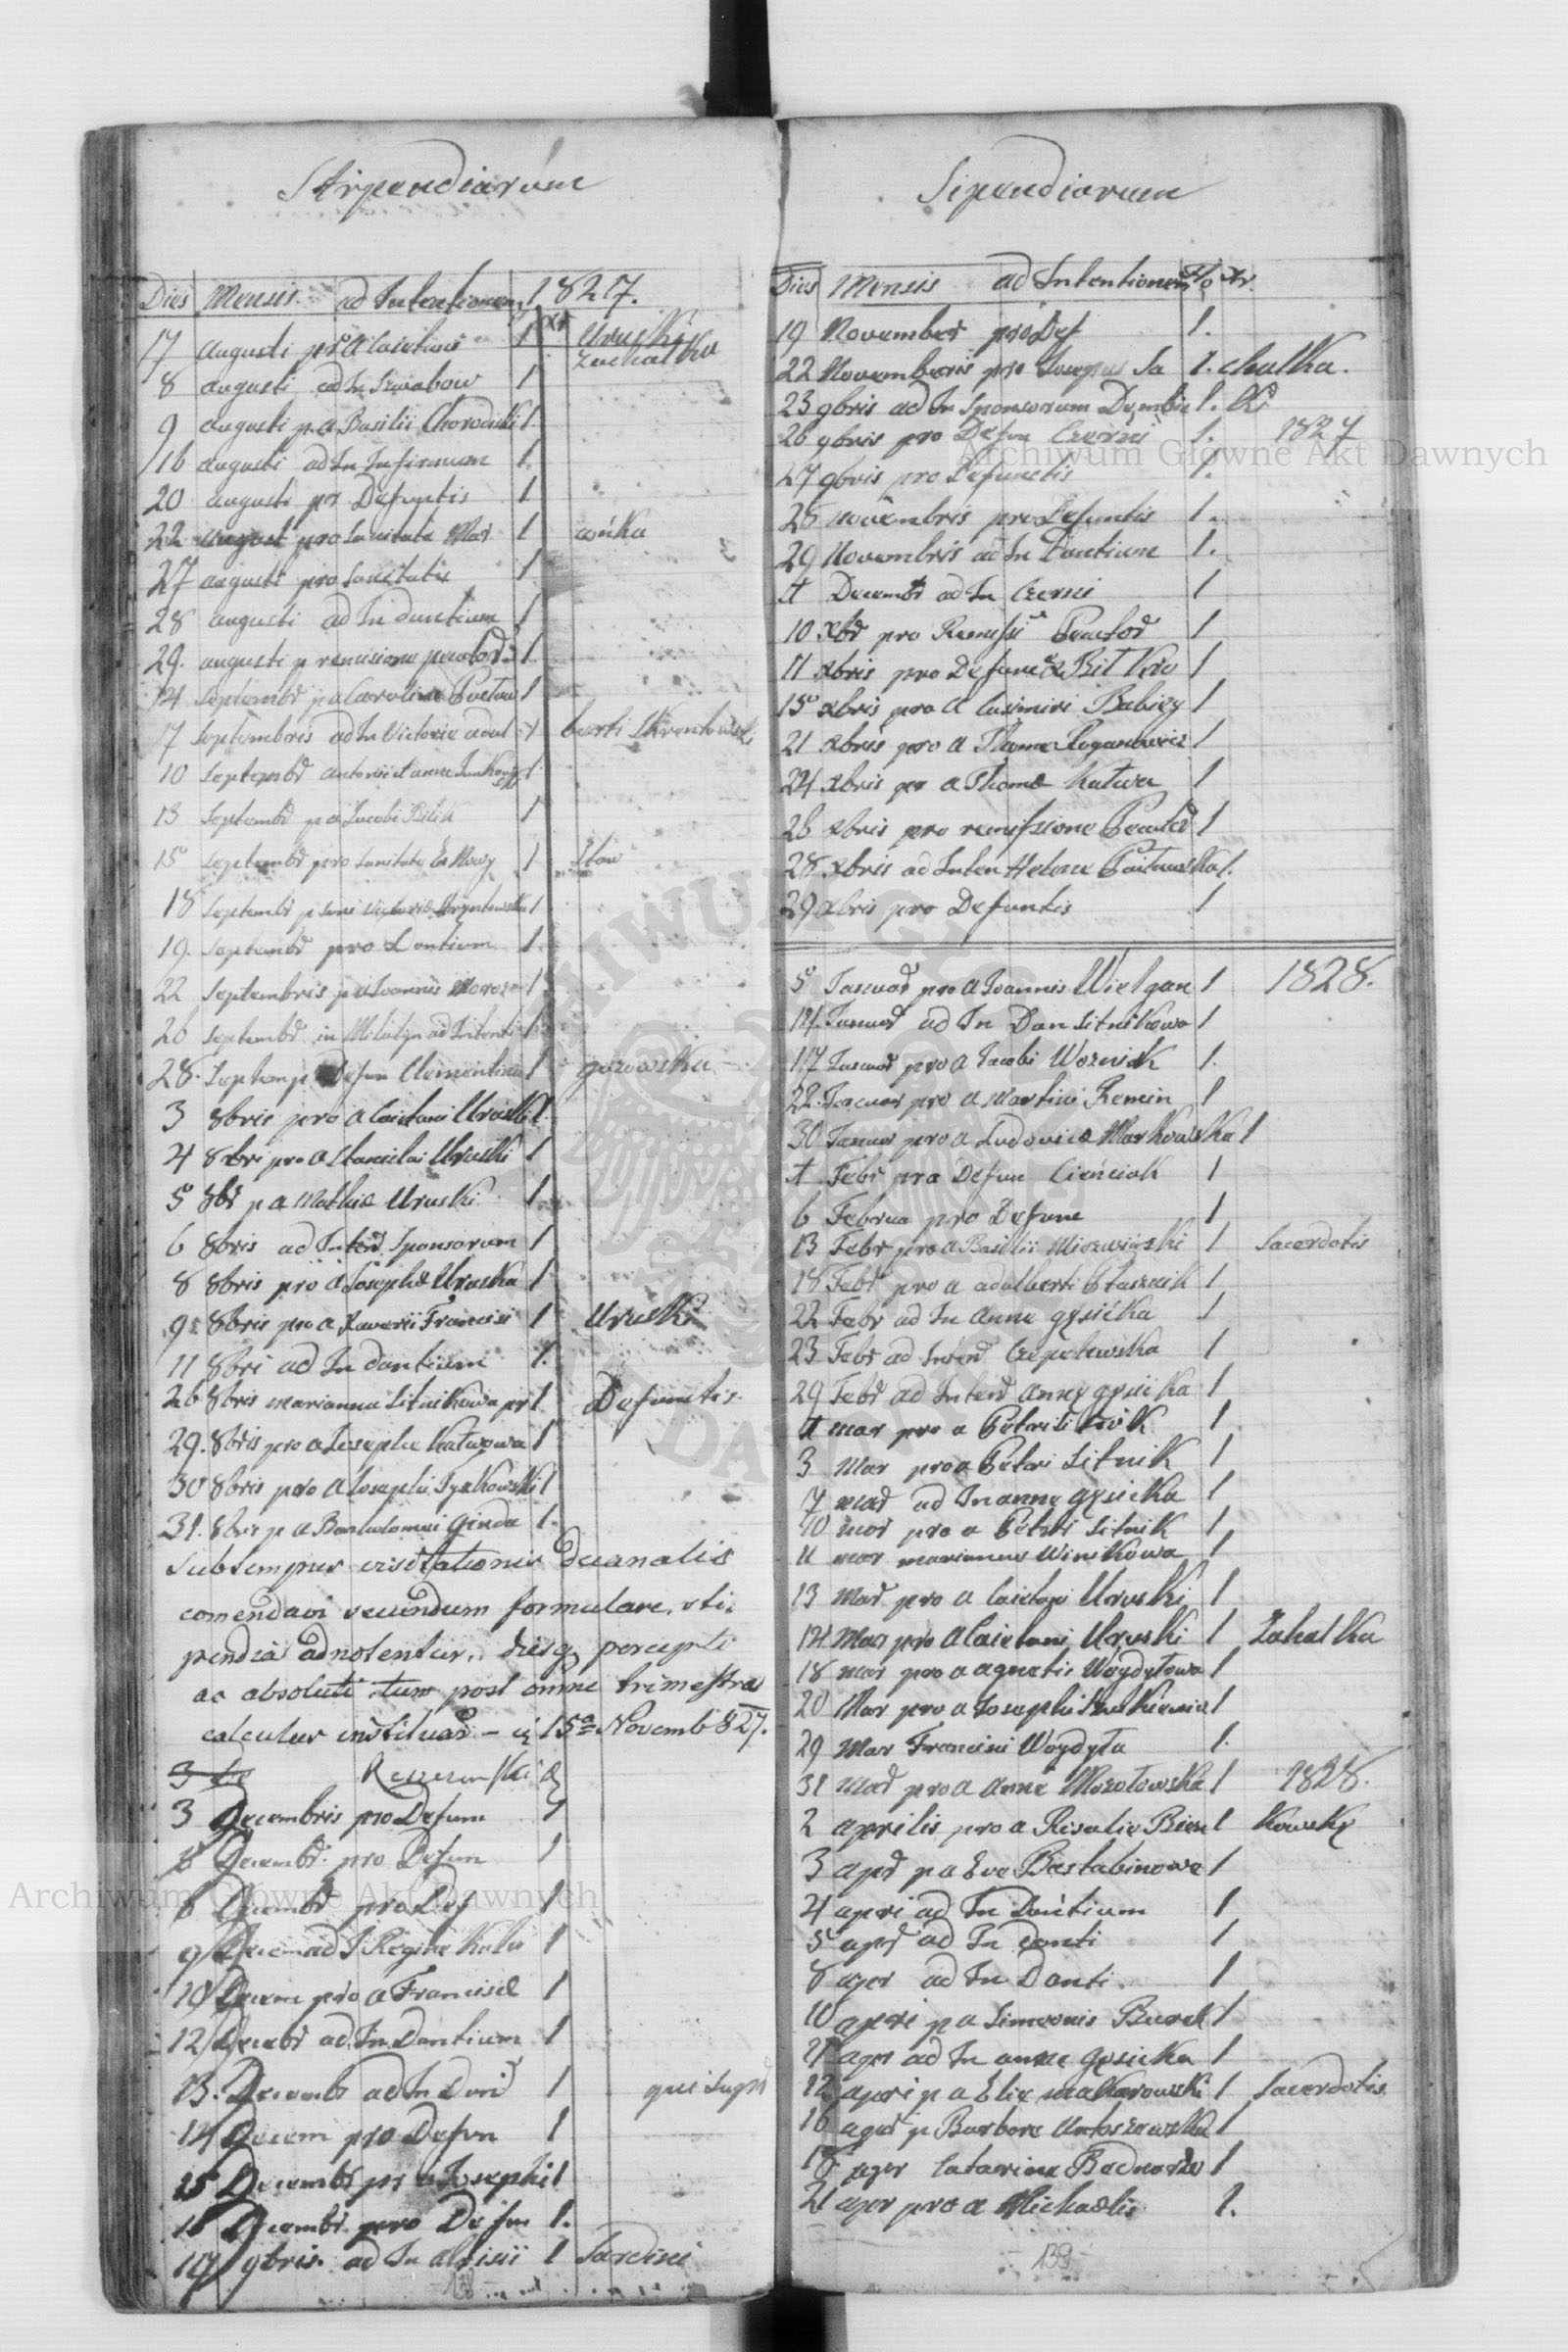 Stipendiarúm
Dies Mensis ad Intentionem 1827.
17 augusti pro A Caietani 1 xr Uruski
Zachalka
8 augusti ad In Szwabow 1
9 augusti p. a Basilii Chorodecki 1.
16 augusti ad In Infirmum 1.
20 augusti pr Defuntis 1
22 august pro Sanitate Mar 1 ańka
27 augusti pro Sanitate 1
28 augusti ad In dantium 1
29. augusti p remisione peccator 1
14 Septembr p a Caroline 1
17 Septembris ad In Victorie adal 1 berti Skrentowski
10 Septembr Antonii et anne 1
13 Septembr p a Jacobi Bilik 1
15 Septembr pro Sanitate Ex Nowy 1 Staw
18 Septembr p Victorie 1
19. Septembr pro Dantium 1.
22 Septembris p a Joannis Moroz 1
26 Septembr in Milatyn ad Intenti 1
28. Septem p Defun Clementine 1 gorowska
3 8bris pro A Caietani Uruski 1.
4 8bri pro A Stanislai Uruski 1
5 8br p a Mathie Uruski 1.
6 8bris ad Inten Sponsorum 1
8 8bris pro a Josephe Uruska 1
9 8bris pro a Xaverii Francisi 1 Uruski
11 8bri ad In dantium 1.
26 8bris marianna Sitnikowa pr 1. Defunctis
29. 8bris pro a Josephe Katwowa 1
30 8bris pro A Josephi Tyrkowski 1
31. 8bris p a Bartholomei Ginda 1.
sub tempus visitationis Decanalis
comendavi secundum formulare, sti-
pendia adnotentur, diesq percepti
ac absoluti tum post omne trimestra
calculus instituar – 15a Novemb 827.
3
3 Decembris pro Defun 1
Decembr pro Defun 1
6 Decembr pro Def 1
9 Decem ad I Regine Kulis 1
10 Decem pro a Francisce 1
12 Decebr ad In Dantium 1
13. Decemb ad In Dan 1
14 Decem pro Defun 1
15 Decembr pr a Josephi 1
16 Decembr pro Defun 1.
17 9bris ad In Aloisii 1 Sardini
138
Sipendiarum
Dies Mensis ad Intentionem Flo Xr.
19 November pro Def 1.
22 Novembris pro Sa 1. chalka.
23 9bris ad In Sponsorum Dembic 1. ki
26 9bris pro Defun Czerni 1. 1827
27 9bris pro Defunctis 1.
28 novembris pro Defuntis 1.
29 Novembris ad In Dantium 1.
Decembr ad In Czerni 1
10 Xbr pro Remissi Peccator 1
11 Xbris pro Defunc a Bitkio 1
15 xbris pro A Casimiri Babiczy 1
21 xbris pro a Thoma 1
24 Xbris pro a Thome Katwa 1
26 xbris pro remissione Peccator 1
28 xbris ad Inten Helene 1.
29 xbris pro Defuntis 1
5 Januar pro A Joannis Wielgan 1 1828.
14. Januar ad In Dan Sitnikowa 1
17 Januar pro A Jacobi Wozniak 1.
22. Januar pro A Martini Remin 1
30 Januar pro A Ludovice Markowska 1
Febr pro Defun Cienciak 1
6 Februa pro Defunc 1
13 Febr pro a Basilii 1 Sacerdotis
18 Febr pro a adalberti Ptasznik 1
22 Febr ad In Anne gęsicka 1
23 Febr ad Inten 1
29 Febr ad Inten Anny gęsicka 1
mar pro a Petri 1.
3 Mar pro a Petri Sitnik 1
7 mar ad In anne gęsicka 1
10 mar pro a Petri Sitnik 1
11 mar marianne Winikowa 1
13 Mar pro a Caietani Uruski 1
14 Mar pro A Caietani Uruski 1 Zahalka
18 mar pro a agnetis Woydyłowa 1
20 Mar pro a Josephi 1
29 Mar Francisci Woydyła 1.
31 mar pro a Anne 1 1828.
2 aprilis pro a Rosalie Bien 1 kowsky
3 apr p a Eve Bastabinowa 1
4 apri ad In Dantium 1
5 apr ad In danti 1
8 apr ad In Danti 1
10 apri p a Simeonis Burek 1
apr ad In anne gęsicka 1
12 apri p a Elie Makarowski 1 Sacerdotis
16 apr p Barbare 1
18 apr Catarina Bednarz 1
21 apr pro a Michaelis 1.
139
Archiwum Główne Akt Dawnych
Archiwum Główne Akt Dawnych